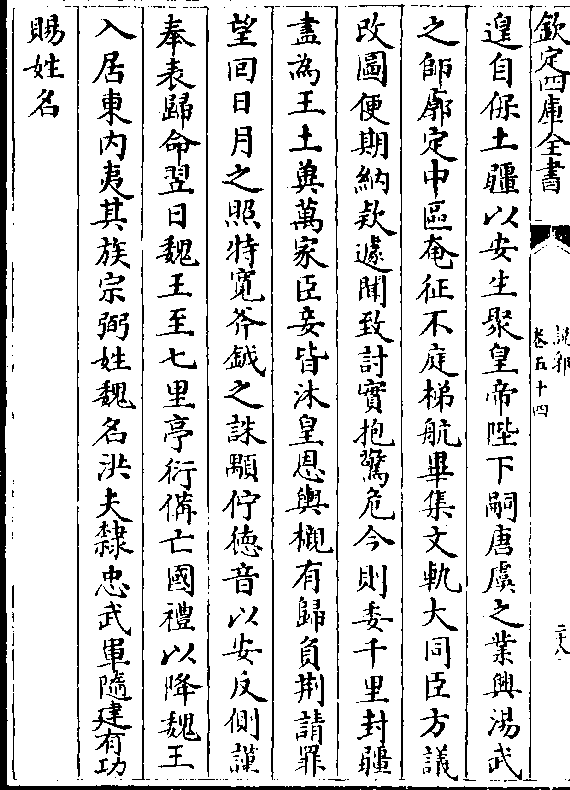 欽定四庫全書
說郛
卷五十四
二十八
遑自保土疆以安生聚皇帝陛下嗣唐虞之業興湯武
之師廓定中區奄征不庭梯航畢集文軌大同臣方議
改圖便期納欵遽聞致討實抱驚危今則委千里封疆
盡為王土冀萬家臣妾皆沐皇恩輿櫬有歸負荆請罪
望回日月之照特寛斧鉞之誅顒佇徳音以安反側謹
奉表歸命翌日魏王至七里亭衍備亡國禮以降魏王
入居東内夷其族宗弼姓魏名洪夫隸忠武軍隨建有功
賜姓名